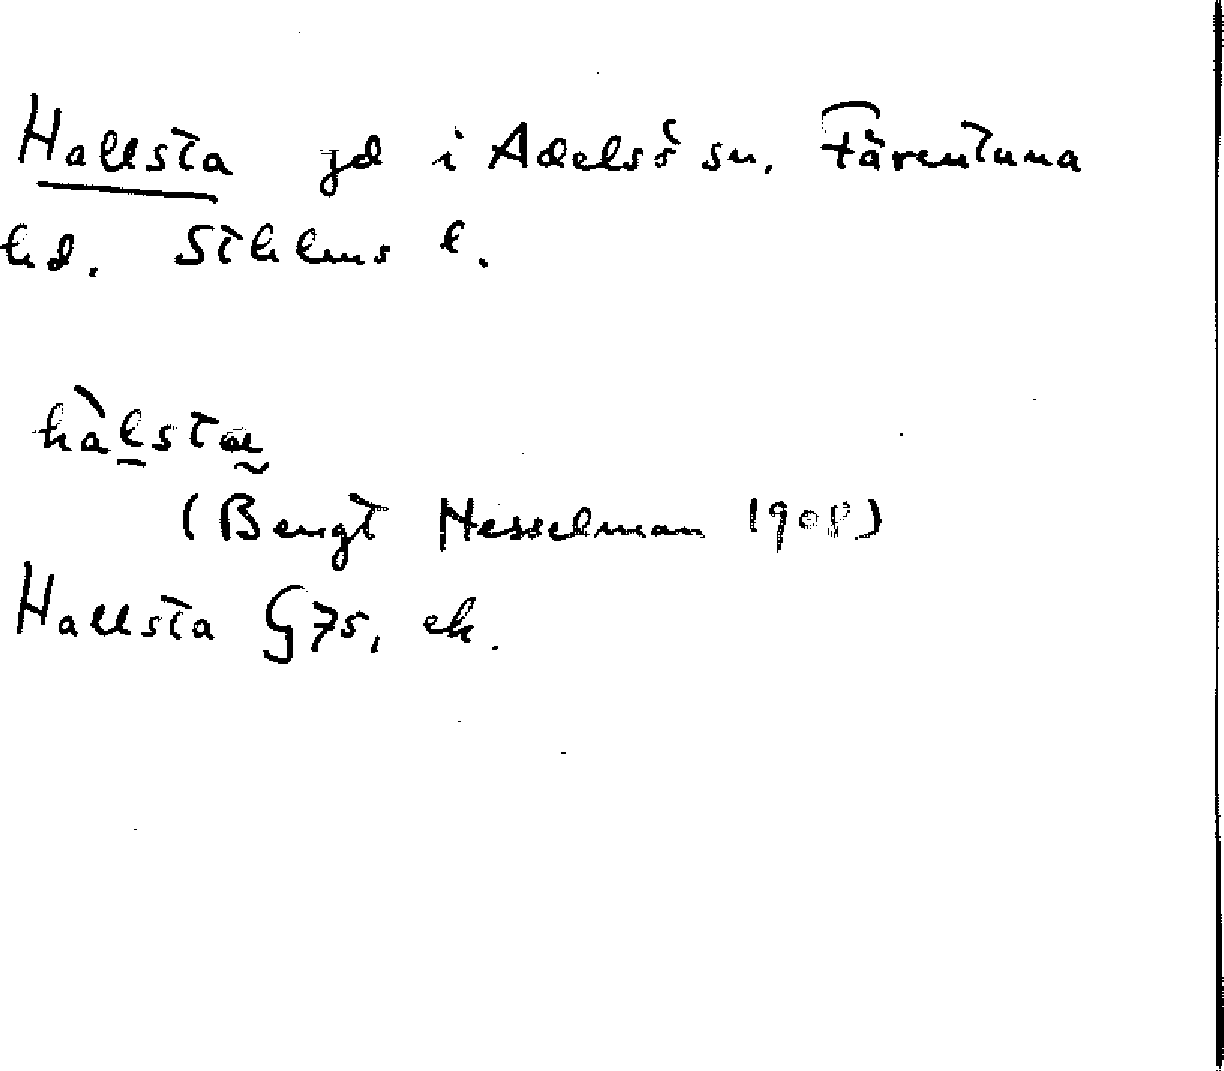 Hallsta gd i Adelsö sn. Färentuna
hd. Sthlms l.
hàl̲sta̰
(Bengt Hesselman 1908)
Hallsta G75, ek.